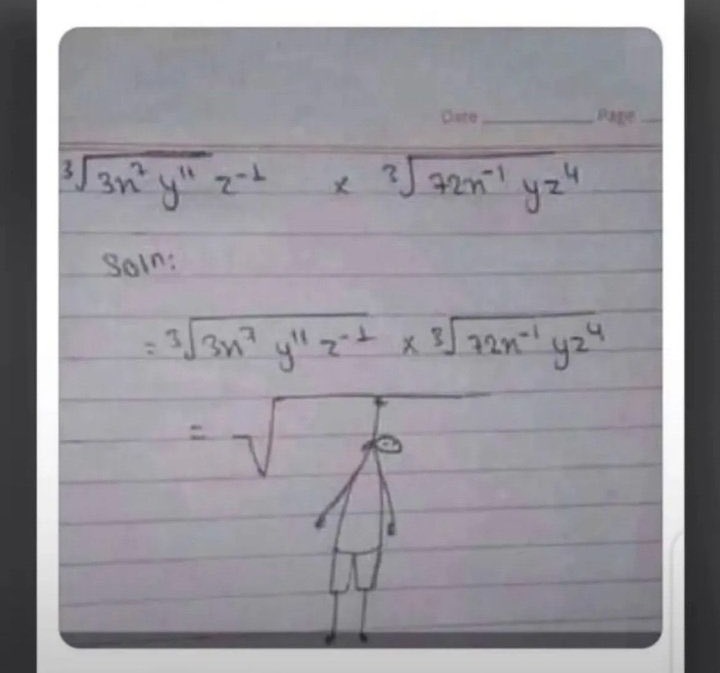 Date Page
∛3x⁷ y¹¹ z⁻¹ × ∛72x⁻¹ yz⁴
Soln:
= ∛3x⁷ y¹¹ z⁻¹ × ∛72x⁻¹ yz⁴
= √